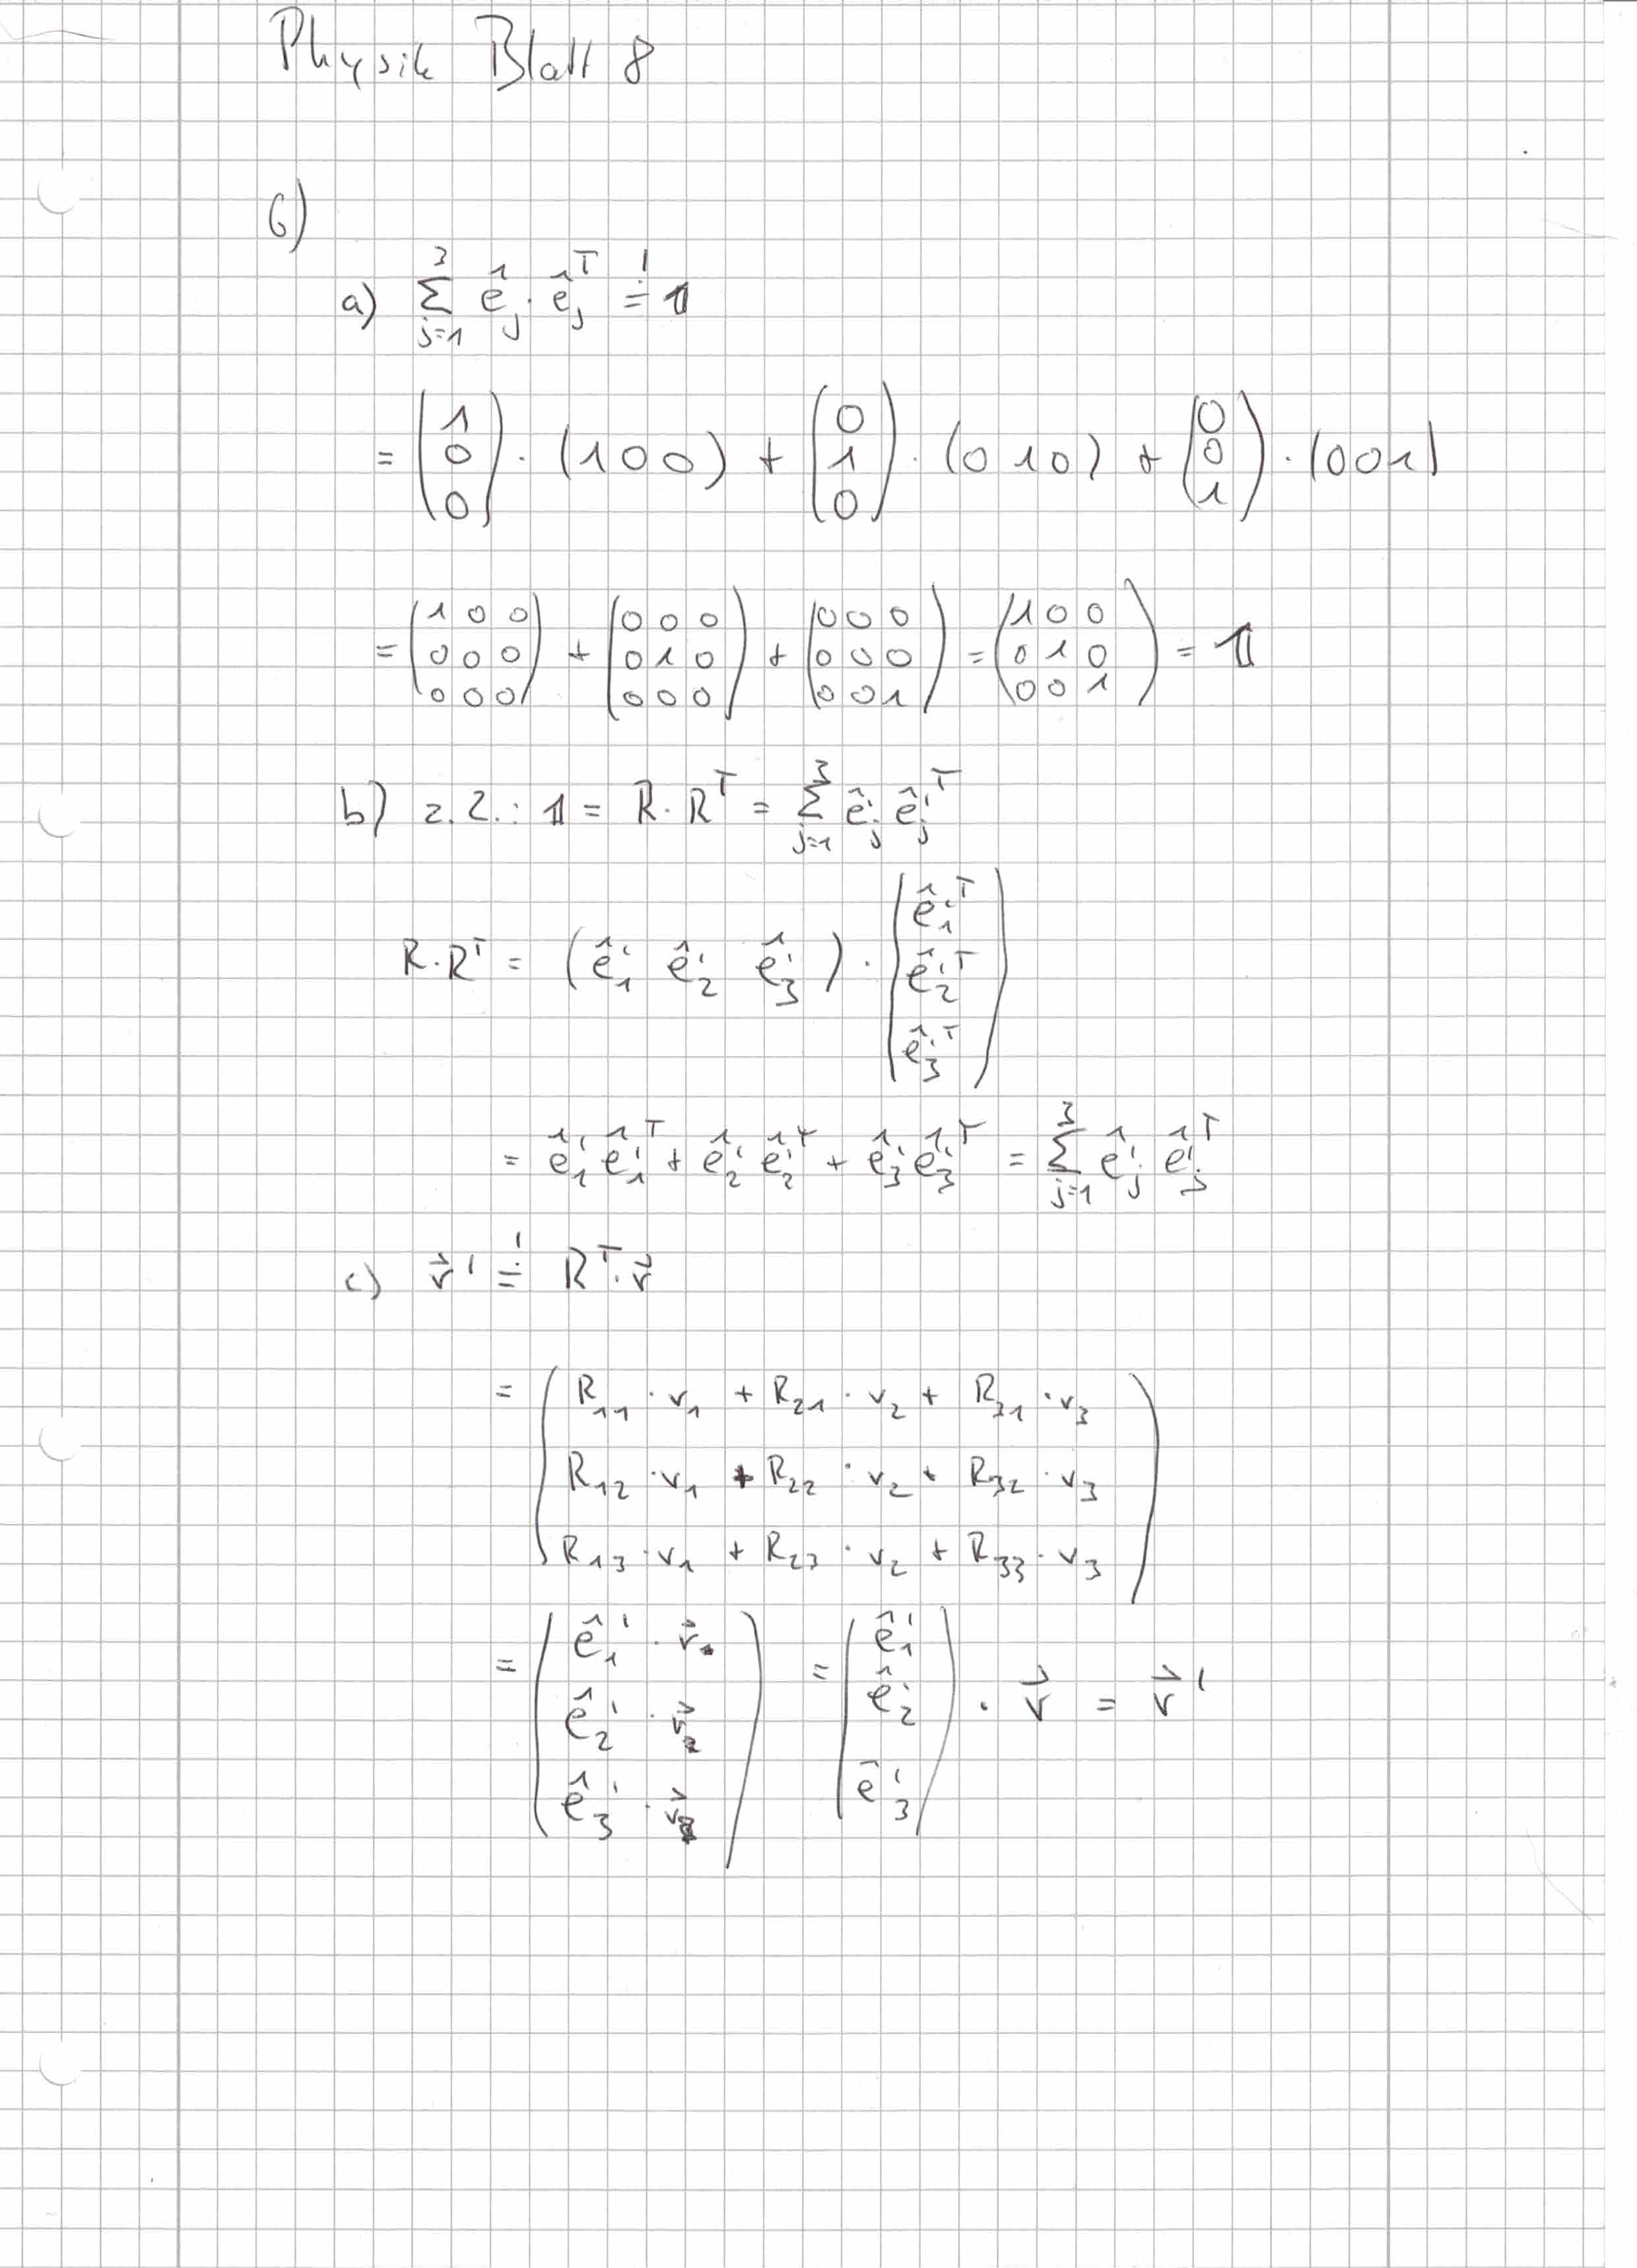 Physik Blatt 8
6)
a) $\sum_{j=1}^{3} \hat{e}_j \cdot \hat{e}_j^T \overset{!}{=} 𝟙$
$= \begin{pmatrix} 1 \\ 0 \\ 0 \end{pmatrix} \cdot (1 0 0) + \begin{pmatrix} 0 \\ 1 \\ 0 \end{pmatrix} \cdot (0 1 0) + \begin{pmatrix} 0 \\ 0 \\ 1 \end{pmatrix} \cdot (0 0 1)$
$= \begin{pmatrix} 1 & 0 & 0 \\ 0 & 0 & 0 \\ 0 & 0 & 0 \end{pmatrix} + \begin{pmatrix} 0 & 0 & 0 \\ 0 & 1 & 0 \\ 0 & 0 & 0 \end{pmatrix} + \begin{pmatrix} 0 & 0 & 0 \\ 0 & 0 & 0 \\ 0 & 0 & 1 \end{pmatrix} = \begin{pmatrix} 1 & 0 & 0 \\ 0 & 1 & 0 \\ 0 & 0 & 1 \end{pmatrix} = 𝟙$
b) z.Z.: $𝟙 = R \cdot R^T = \sum_{j=1}^{3} \hat{e}_j' \hat{e}_j'^T$
$R \cdot R^T = (\hat{e}_1' \; \hat{e}_2' \; \hat{e}_3') \cdot \begin{pmatrix} \hat{e}_1'^T \\ \hat{e}_2'^T \\ \hat{e}_3'^T \end{pmatrix}$
$= \hat{e}_1' \hat{e}_1'^T + \hat{e}_2' \hat{e}_2'^T + \hat{e}_3' \hat{e}_3'^T = \sum_{j=1}^{3} \hat{e}_j' \hat{e}_j'^T$
c) $\vec{v}\,' \overset{!}{=} R^T \cdot \vec{v}$
$= \begin{pmatrix} R_{11} \cdot v_1 + R_{21} \cdot v_2 + R_{31} \cdot v_3 \\ R_{12} \cdot v_1 + R_{22} \cdot v_2 + R_{32} \cdot v_3 \\ R_{13} \cdot v_1 + R_{23} \cdot v_2 + R_{33} \cdot v_3 \end{pmatrix}$
$= \begin{pmatrix} \hat{e}_1' \cdot \vec{v} \\ \hat{e}_2' \cdot \vec{v} \\ \hat{e}_3' \cdot \vec{v} \end{pmatrix} = \begin{pmatrix} \hat{e}_1' \\ \hat{e}_2' \\ \hat{e}_3' \end{pmatrix} \cdot \vec{v} = \vec{v}\,'$